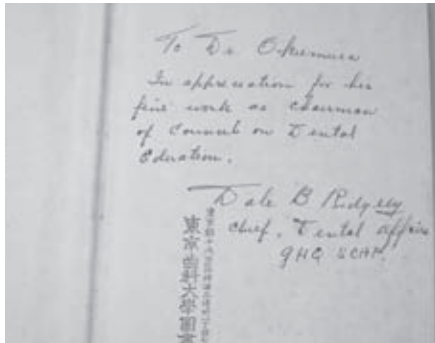 To Dr. Okumura
In appreciation for his
fine work as chairman
of Council on Dental
Education.
Dale B Ridgely
Chief, Dental Affairs
GHQ SCAP.
東京歯科大学図書